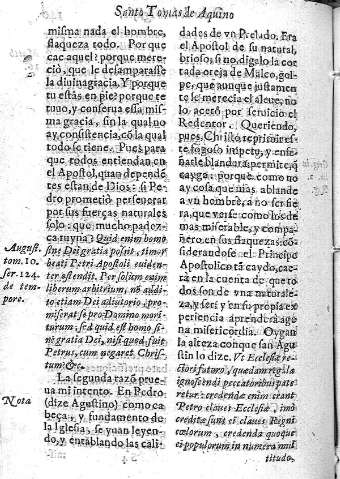 Santo Tomas de Aquino
misma nada el hombre,
flaqueza todo. Porque
cae aquel? porque mere-
ciò, que le desamparasse
la diuina gracia. Y porque
tu estàs en pie? porque te
tuuo, y conserua essa mis-
ma gracia, sin la qual no
ay consistencia, cõ la qual
todo se tiene. Pues para
que todos entiendan en
el Apostol, quan dependẽ
tes estan de Dios: si Pe-
dro prometiò perseuerar
por sus fuerças naturales
solo: que mucho padez-
ca ruyna: Quid enim homo
sine Dei gratia possit, timor
beati Petri Apostoli euiden-
ter ostendit. Per solum enim
liberum arbitrium, nõ addi-
to etiam Dei adiutorio, pro-
miserat se pro Domino mori-
turum, sed quid est homo si-
ne gratia Dei, nisi quod fuit
Petrus, cum negaret Chris-
tum? &c.
La segunda razõ prue-
ua mi intento. En Pedro
(dize Agustino) como ca-
beça, y fundamento de
la Iglesia, se yuan leyen-
do, y entablando las cali-
August.
tom. 10.
ser. 124.
de tem-
pore.
Nota
dades de vn Prelado. Era
el Apostol de su natural,
brioso, si no, digalo la cor
tada oreja de Malco, gol-
pe, que aunque justamen
te le merecia el aleue, no
lo acetò por seruicio el
Redentor. Queriendo,
pues, Christo reprimir es-
te fogoso impetu, y ense-
ñarle blandura, permite, q̃
cayga: porque como no
ay cosa que mas ablande
a vn hombre, a no ser fie-
ra, que verse como los de
mas miserable, y compa-
ñero en sus flaquezas: cõ-
siderandose el Principe
Apostolico tã caydo, cac-
rà en la cuenta de que to
dos somos de vna natura-
leza, y serà y en su propia ex
periencia aprenderà age-
na misericordia. Oygan
la alteza con que san Agus
tin lo dize. Vt Ecclesiæ re-
ctori futuro, quædam regula
ignoscendi peccatoribus pate
retur: credendæ enim erant
Petro claues Ecclesiæ, imò
creditæ sunt ei claues Regni
cœlorum, credenda quoque
ei populorum in numera mul
titudo,